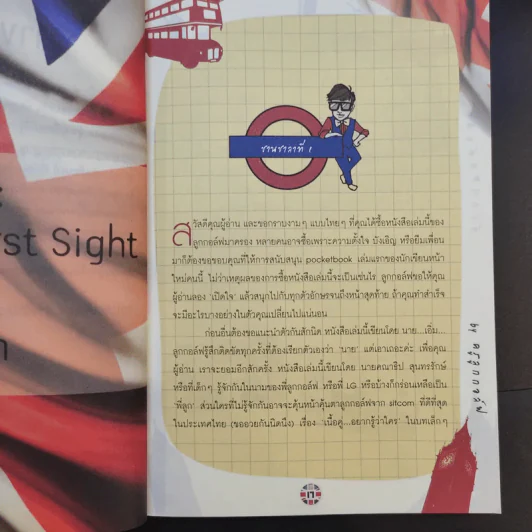 rst Sight
ชานชาลาที่ 1
สวัสดีคุณผู้อ่าน และขอกราบงามๆ แบบไทยๆ ที่คุณได้ซื้อหนังสือเล่มนี้ของ
ลูกกอล์ฟมาครอง หลายคนอาจซื้อเพราะความตั้งใจ บังเอิญ หรือยืมเพื่อน
มาก็ต้องขอขอบคุณที่ให้การสนับสนุน pocketbook เล่มแรกของนักเขียนหน้า
ใหม่คนนี้ ไม่ว่าเหตุผลของการซื้อหนังสือเล่มนี้จะเป็นเช่นไร ลูกกอล์ฟขอให้คุณ
ผู้อ่านลอง 'เปิดใจ' แล้วสนุกไปกับทุกตัวอักษรจนถึงหน้าสุดท้าย ถ้าคุณทำสำเร็จ
จะมีอะไรบางอย่างในตัวคุณเปลี่ยนไปแน่นอน
ก่อนอื่นต้องขอแนะนำตัวกันสักนิด หนังสือเล่มนี้เขียนโดย นาย...เอิ่ม...
ลูกกอล์ฟรู้สึกติดขัดทุกครั้งที่ต้องเรียกตัวเองว่า 'นาย' แต่เอาเถอะค่ะ เพื่อคุณ
ผู้อ่าน เราจะยอมอีกสักครั้ง หนังสือเล่มนี้เขียนโดย นายคณาธิป สุนทรรักษ์
หรือที่เด็กๆ รู้จักกันในนามของพี่ลูกกอล์ฟ หรือพี่ LG หรือบ้างก็กร่อนเหลือเป็น
'พี่ลูก' ส่วนใครที่ไม่รู้จักกันอาจจะคุ้นหน้าคุ้นตาลูกกอล์ฟจาก sitcom ที่ดีที่สุด
ในประเทศไทย (ขออวยกันนิดนึง) เรื่อง 'เนื้อคู่...อยากรู้ว่าใคร' ในบทเล็กๆ
by ครูลูกกอล์ฟ
17